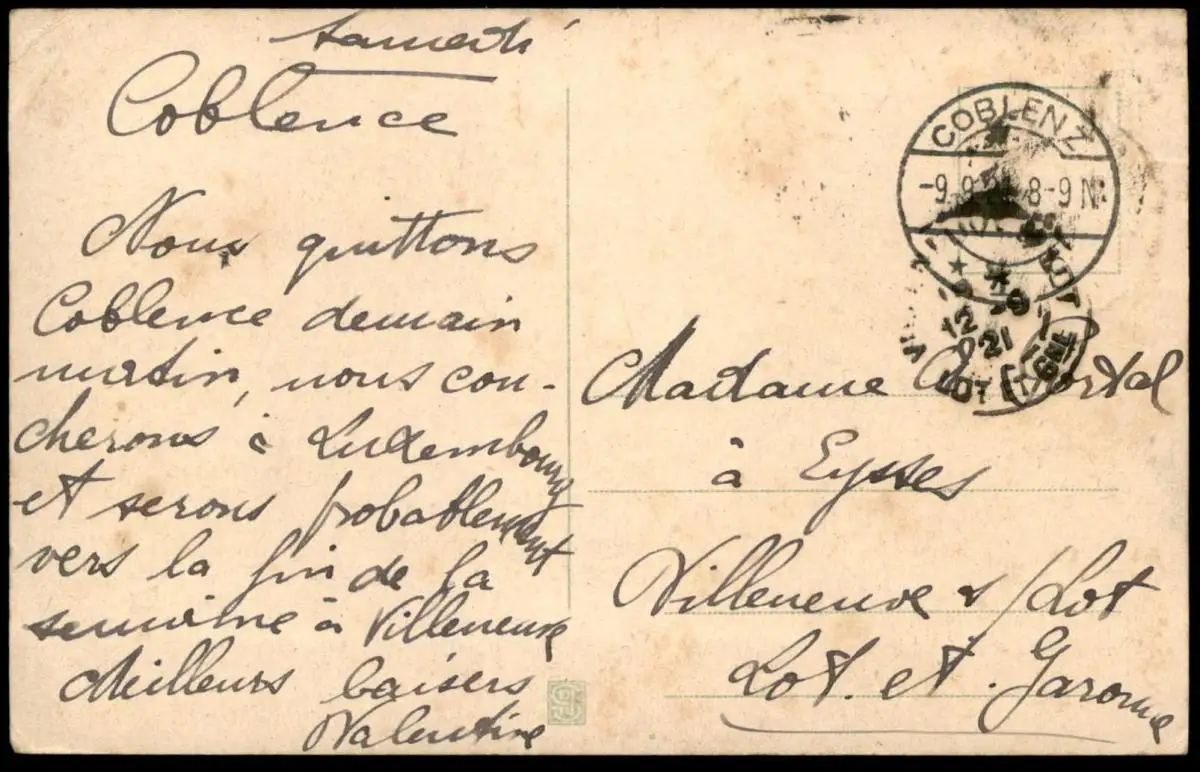 samedi
Coblence
Nous quittons
Coblence demain
matin, nous cou-
cherons à Luxembourg
et serons probablement
vers la fin de la
semaine à Villeneuve
Meilleurs baisers
Valentine
COBLENZ
-9.9. 8-9 N
12 -9
21
LOT ET GNE
Madame
à Eysses
Villeneuve s/Lot
Lot. et. Garonne